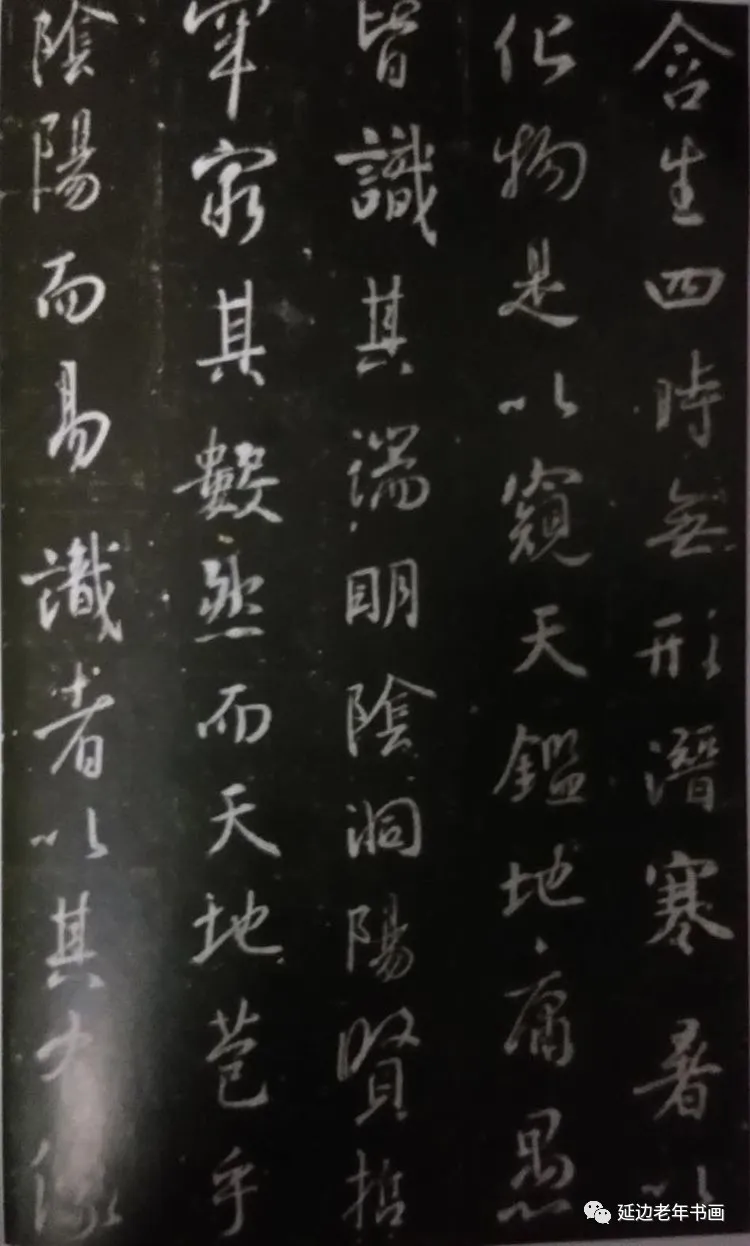 含生四時無形潛寒暑以
化物是以窺天鑑地庸愚
皆識其端明陰洞陽賢哲
罕窮其數然而天地苞乎
陰陽而易識者以其有像
延边老年书画